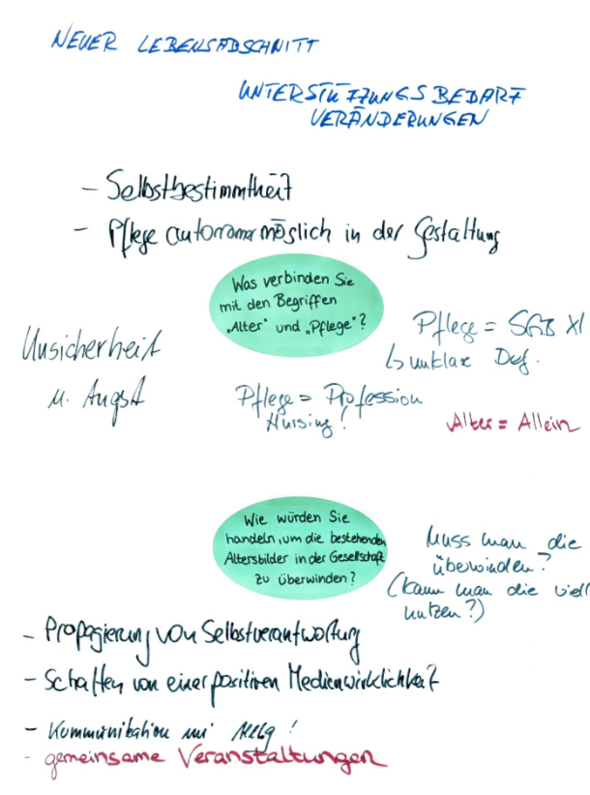 NEUER LEBENSABSCHNITT
UNTERSTÜTZUNGSBEDARF
VERÄNDERUNGEN
- Selbstbestimmtheit
- Pflege autonom möglich in der Gestaltung
Was verbinden Sie
mit den Begriffen
"Alter" und "Pflege"?
Unsicherheit
u. Angst
Pflege = SGB XI
↳ unklare Def.
Pflege = Profession
Nursing!
Alter = Allein
Wie würden Sie
handeln, um die bestehenden
Altersbilder in der Gesellschaft
zu überwinden?
Muss man die
überwinden?
(kann man die viell
nutzen?)
- Propagierung von Selbstverantwortung
- Schaffen von einer positiven Medienwirklichkeit
- Kommunikation
- gemeinsame Veranstaltungen